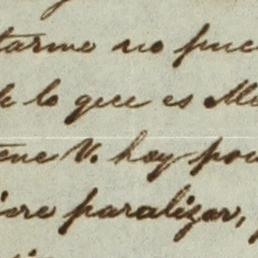 tarme no puc
de lo que es Me
ene V. hoy pou
iere paralizar,